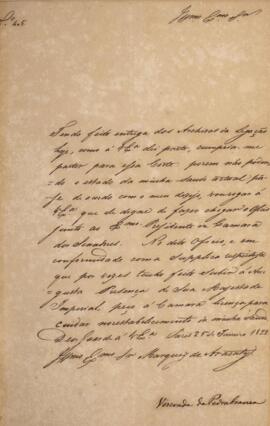 N.º 45
Illmo Exmo Snr
Tendo feito entrega dos Archivos da Legação
hoje, como a V. Exa dei parte, cumpria-me
partir para essa Corte; porem não podem-
do o estado da minha saude actual por-
se de acordo com o meu desejo, rogo a
V. Exa que se digne de fazer chegar o Officio
junto ao Exmo Presidente da Camara
dos Senadores. No dito Officio, e em
conformidade com a Supplica respeitosa
que por vezes tenho feito subir á Au-
gusta Presença de Sua Magestade
Imperial, peço á Camara licença para
cuidar no restabelecimento da minha saude
Deos Guarde a V. Exa Paris 25 de Janeiro 1829
Illmo Exmo Snr Marquez de Aracaty
Visconde da Pedra Branca